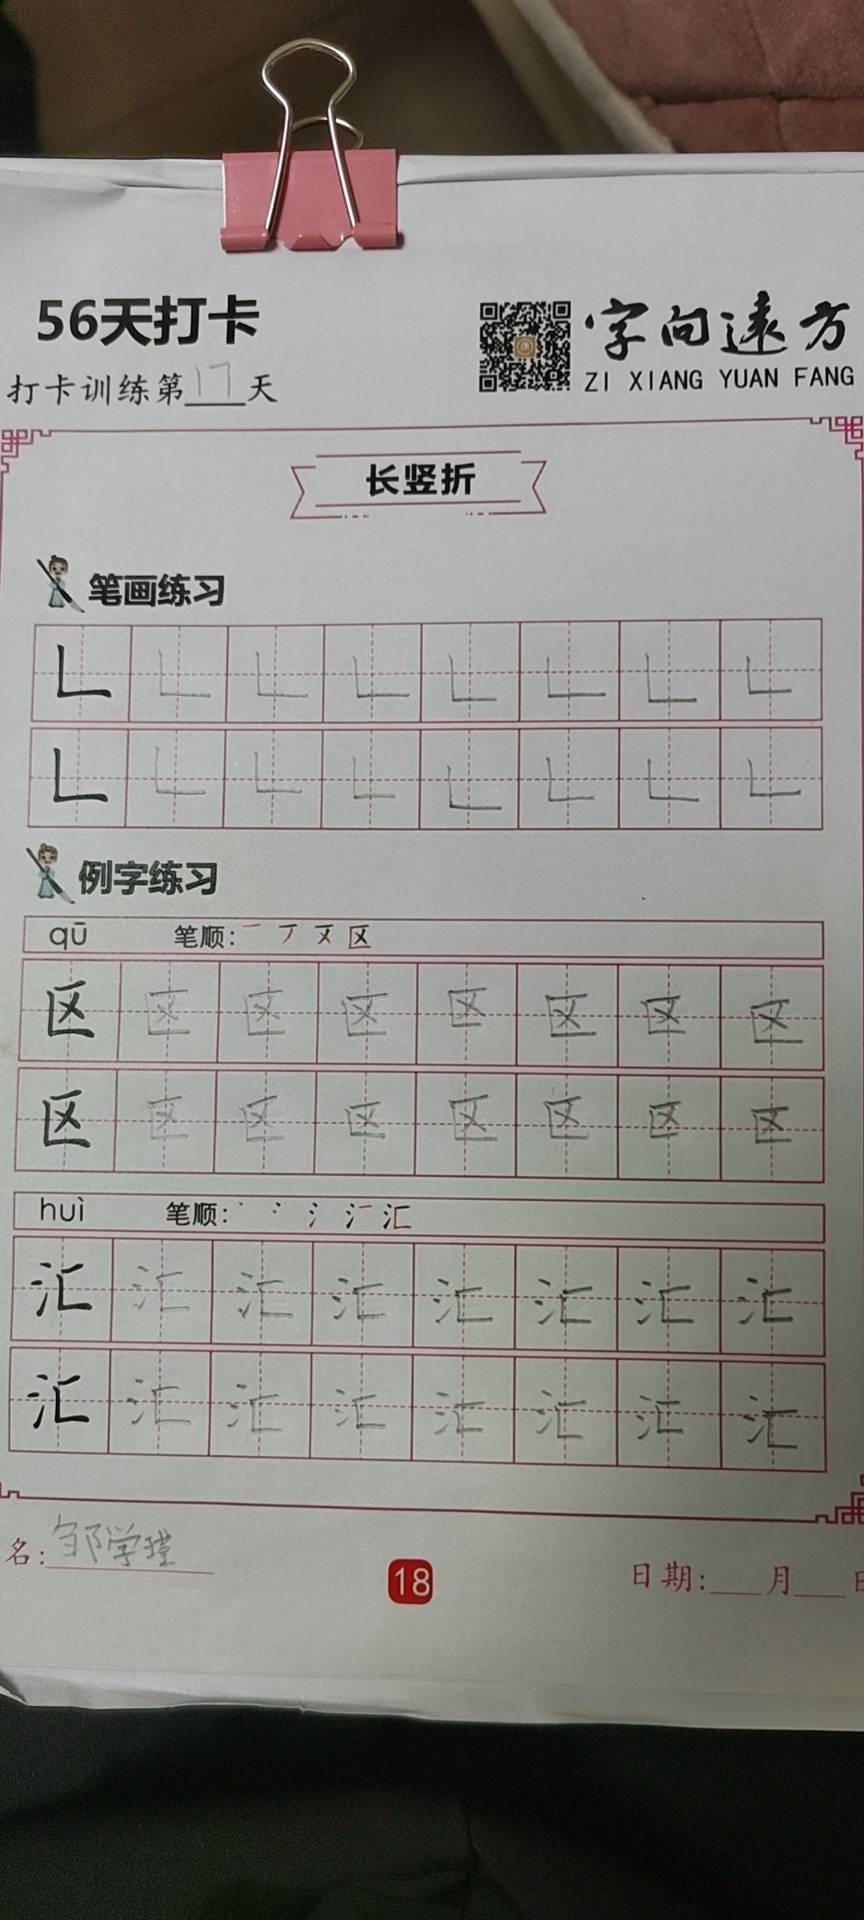 56天打卡
字向远方
ZI XIANG YUAN FANG
打卡训练第17天
长竖折
笔画练习
例字练习
qū 笔顺: 一 丆 㐅 区
区 区 区 区 区 区 区 区
区 区 区 区 区 区 区 区
huì 笔顺: 丶 冫 氵 汇
汇 汇 汇 汇 汇 汇 汇 汇
汇 汇 汇 汇 汇 汇 汇 汇
名: 邹学瑾
18
日期: 月 日